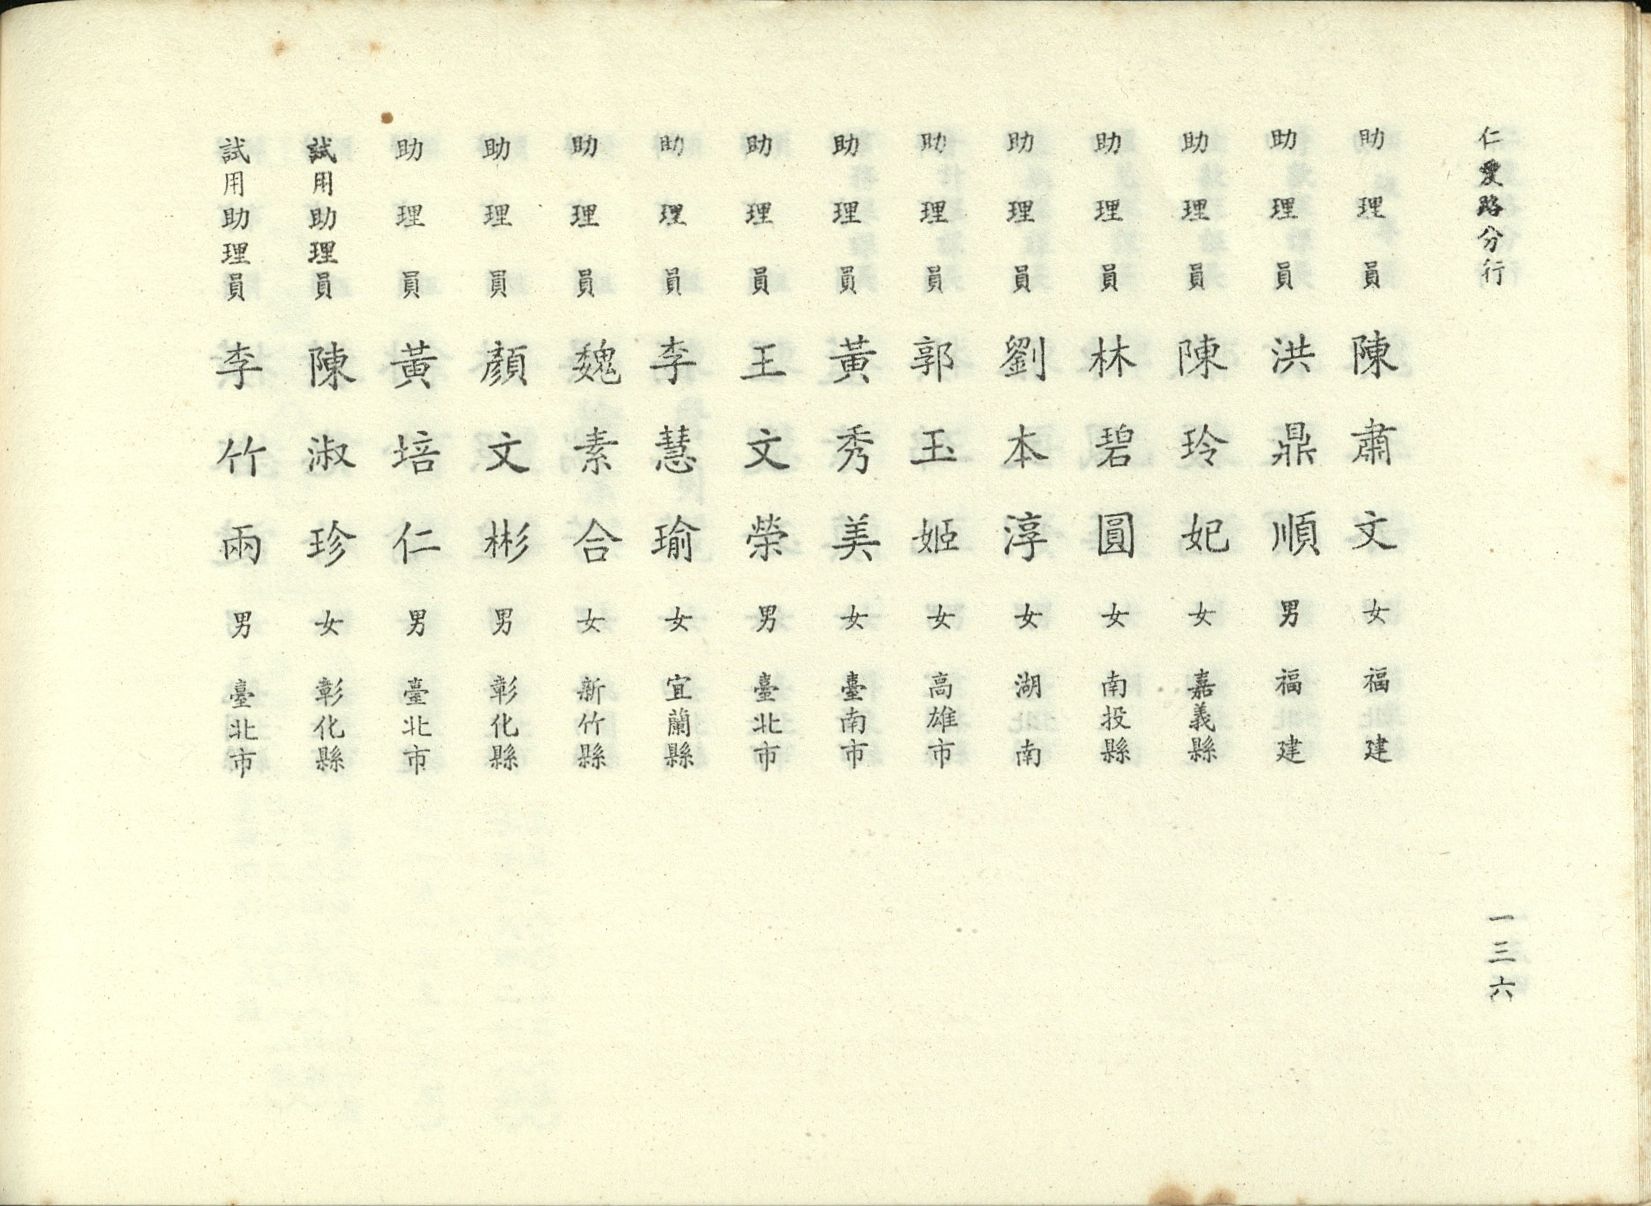 仁愛路分行
一三六
助理員 陳肅文 女 福建
助理員 洪鼎順 男 福建
助理員 陳玲妃 女 嘉義縣
助理員 林碧圓 女 南投縣
助理員 劉本淳 女 湖南
助理員 郭玉姬 女 高雄市
助理員 黃秀美 女 臺南市
助理員 王文榮 男 臺北市
助理員 李慧瑜 女 宜蘭縣
助理員 魏素合 女 新竹縣
助理員 顏文彬 男 彰化縣
助理員 黃培仁 男 臺北市
試用助理員 陳淑珍 女 彰化縣
試用助理員 李竹雨 男 臺北市